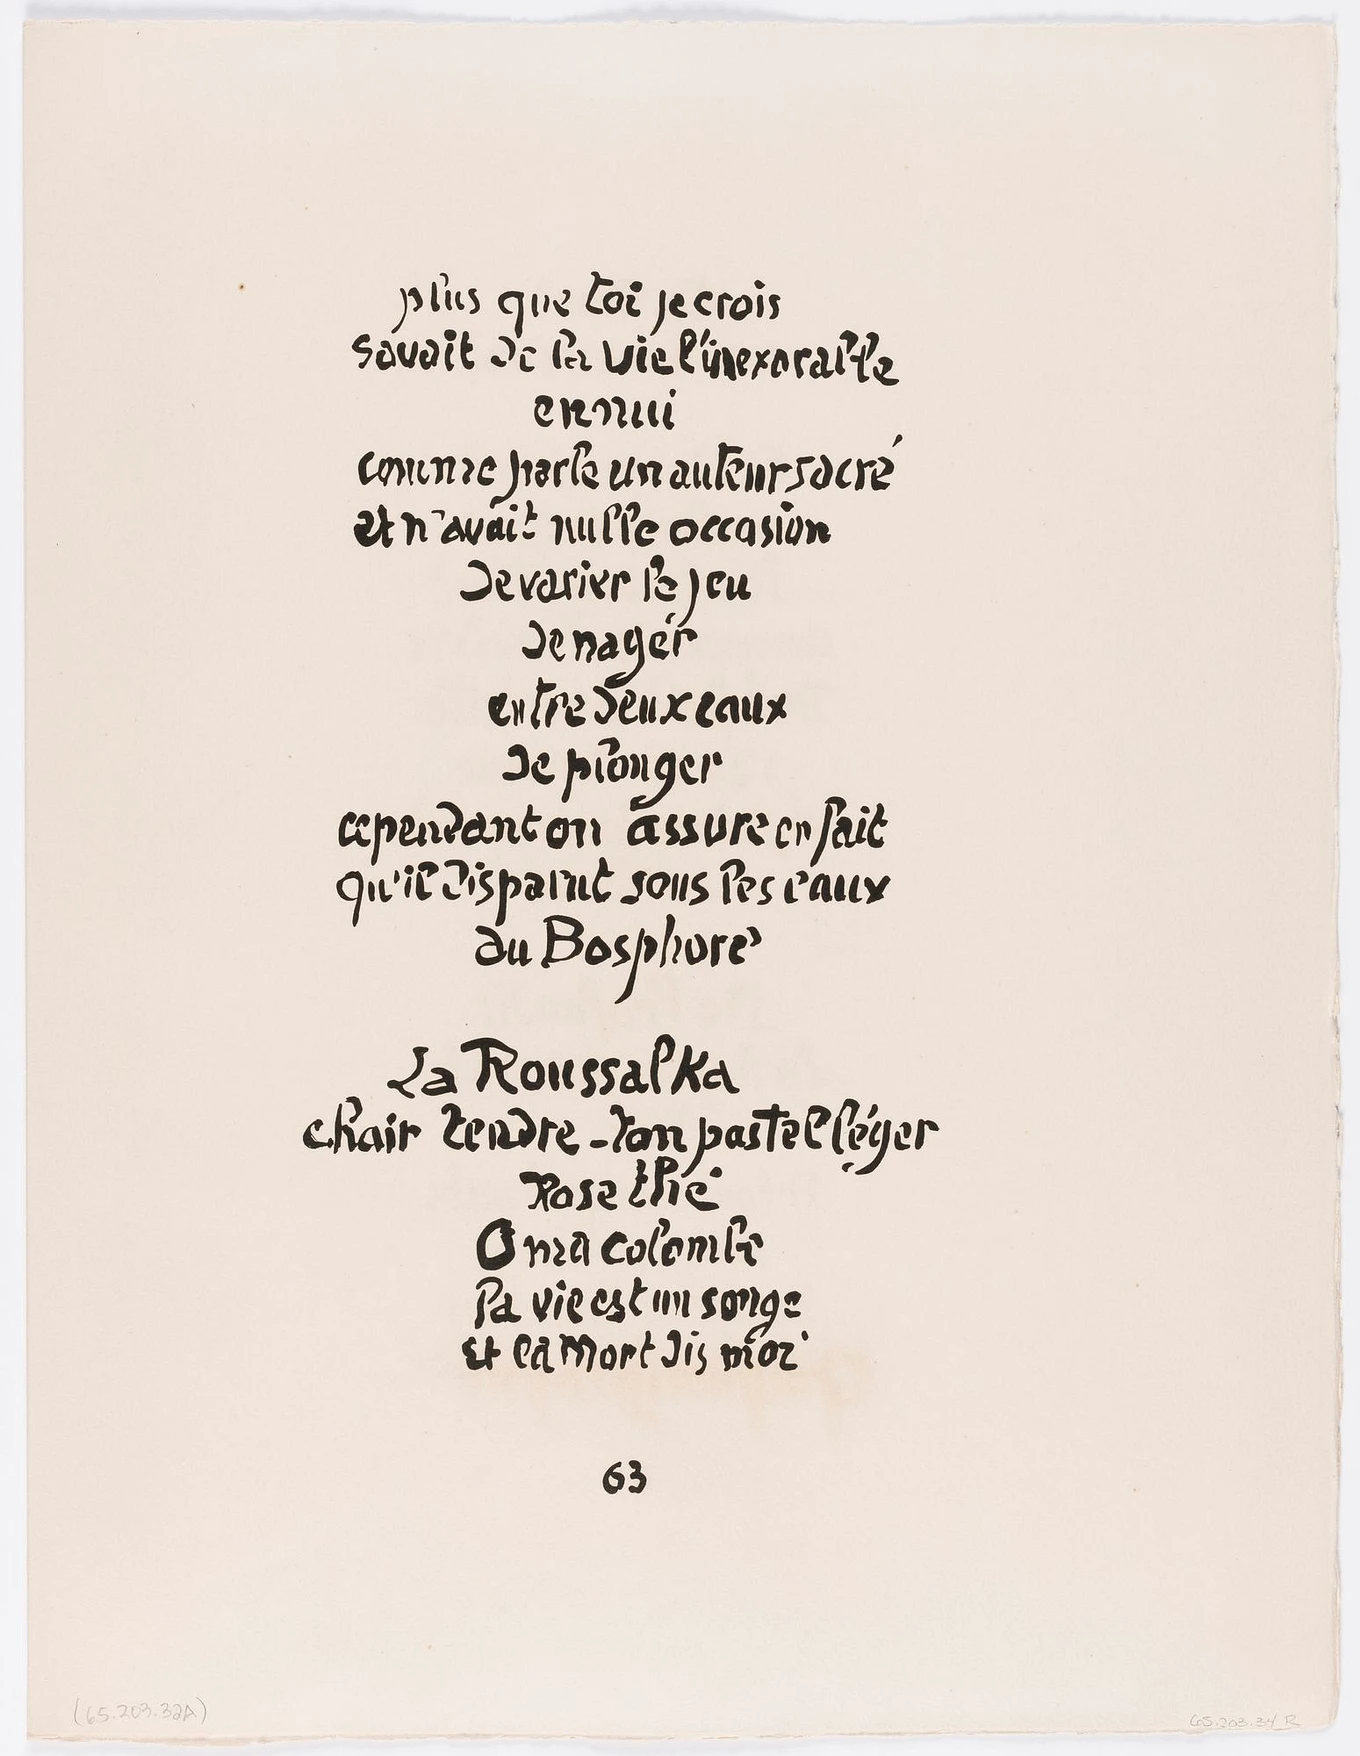 plus que toi je crois
savait de la vie l'inexorable
ennui
comme parle un auteur sacré
et n'avait nulle occasion
de varier le jeu
de nager
entre deux eaux
de plonger
cependant on assure en fait
qu'il disparut sous les eaux
du Bosphore
La Roussalka
chair tendre - ton pastel léger
Rose thé
O ma colombe
la vie est un songe
et la Mort dis moi
63
(65.203.32A)
65.203.34 R